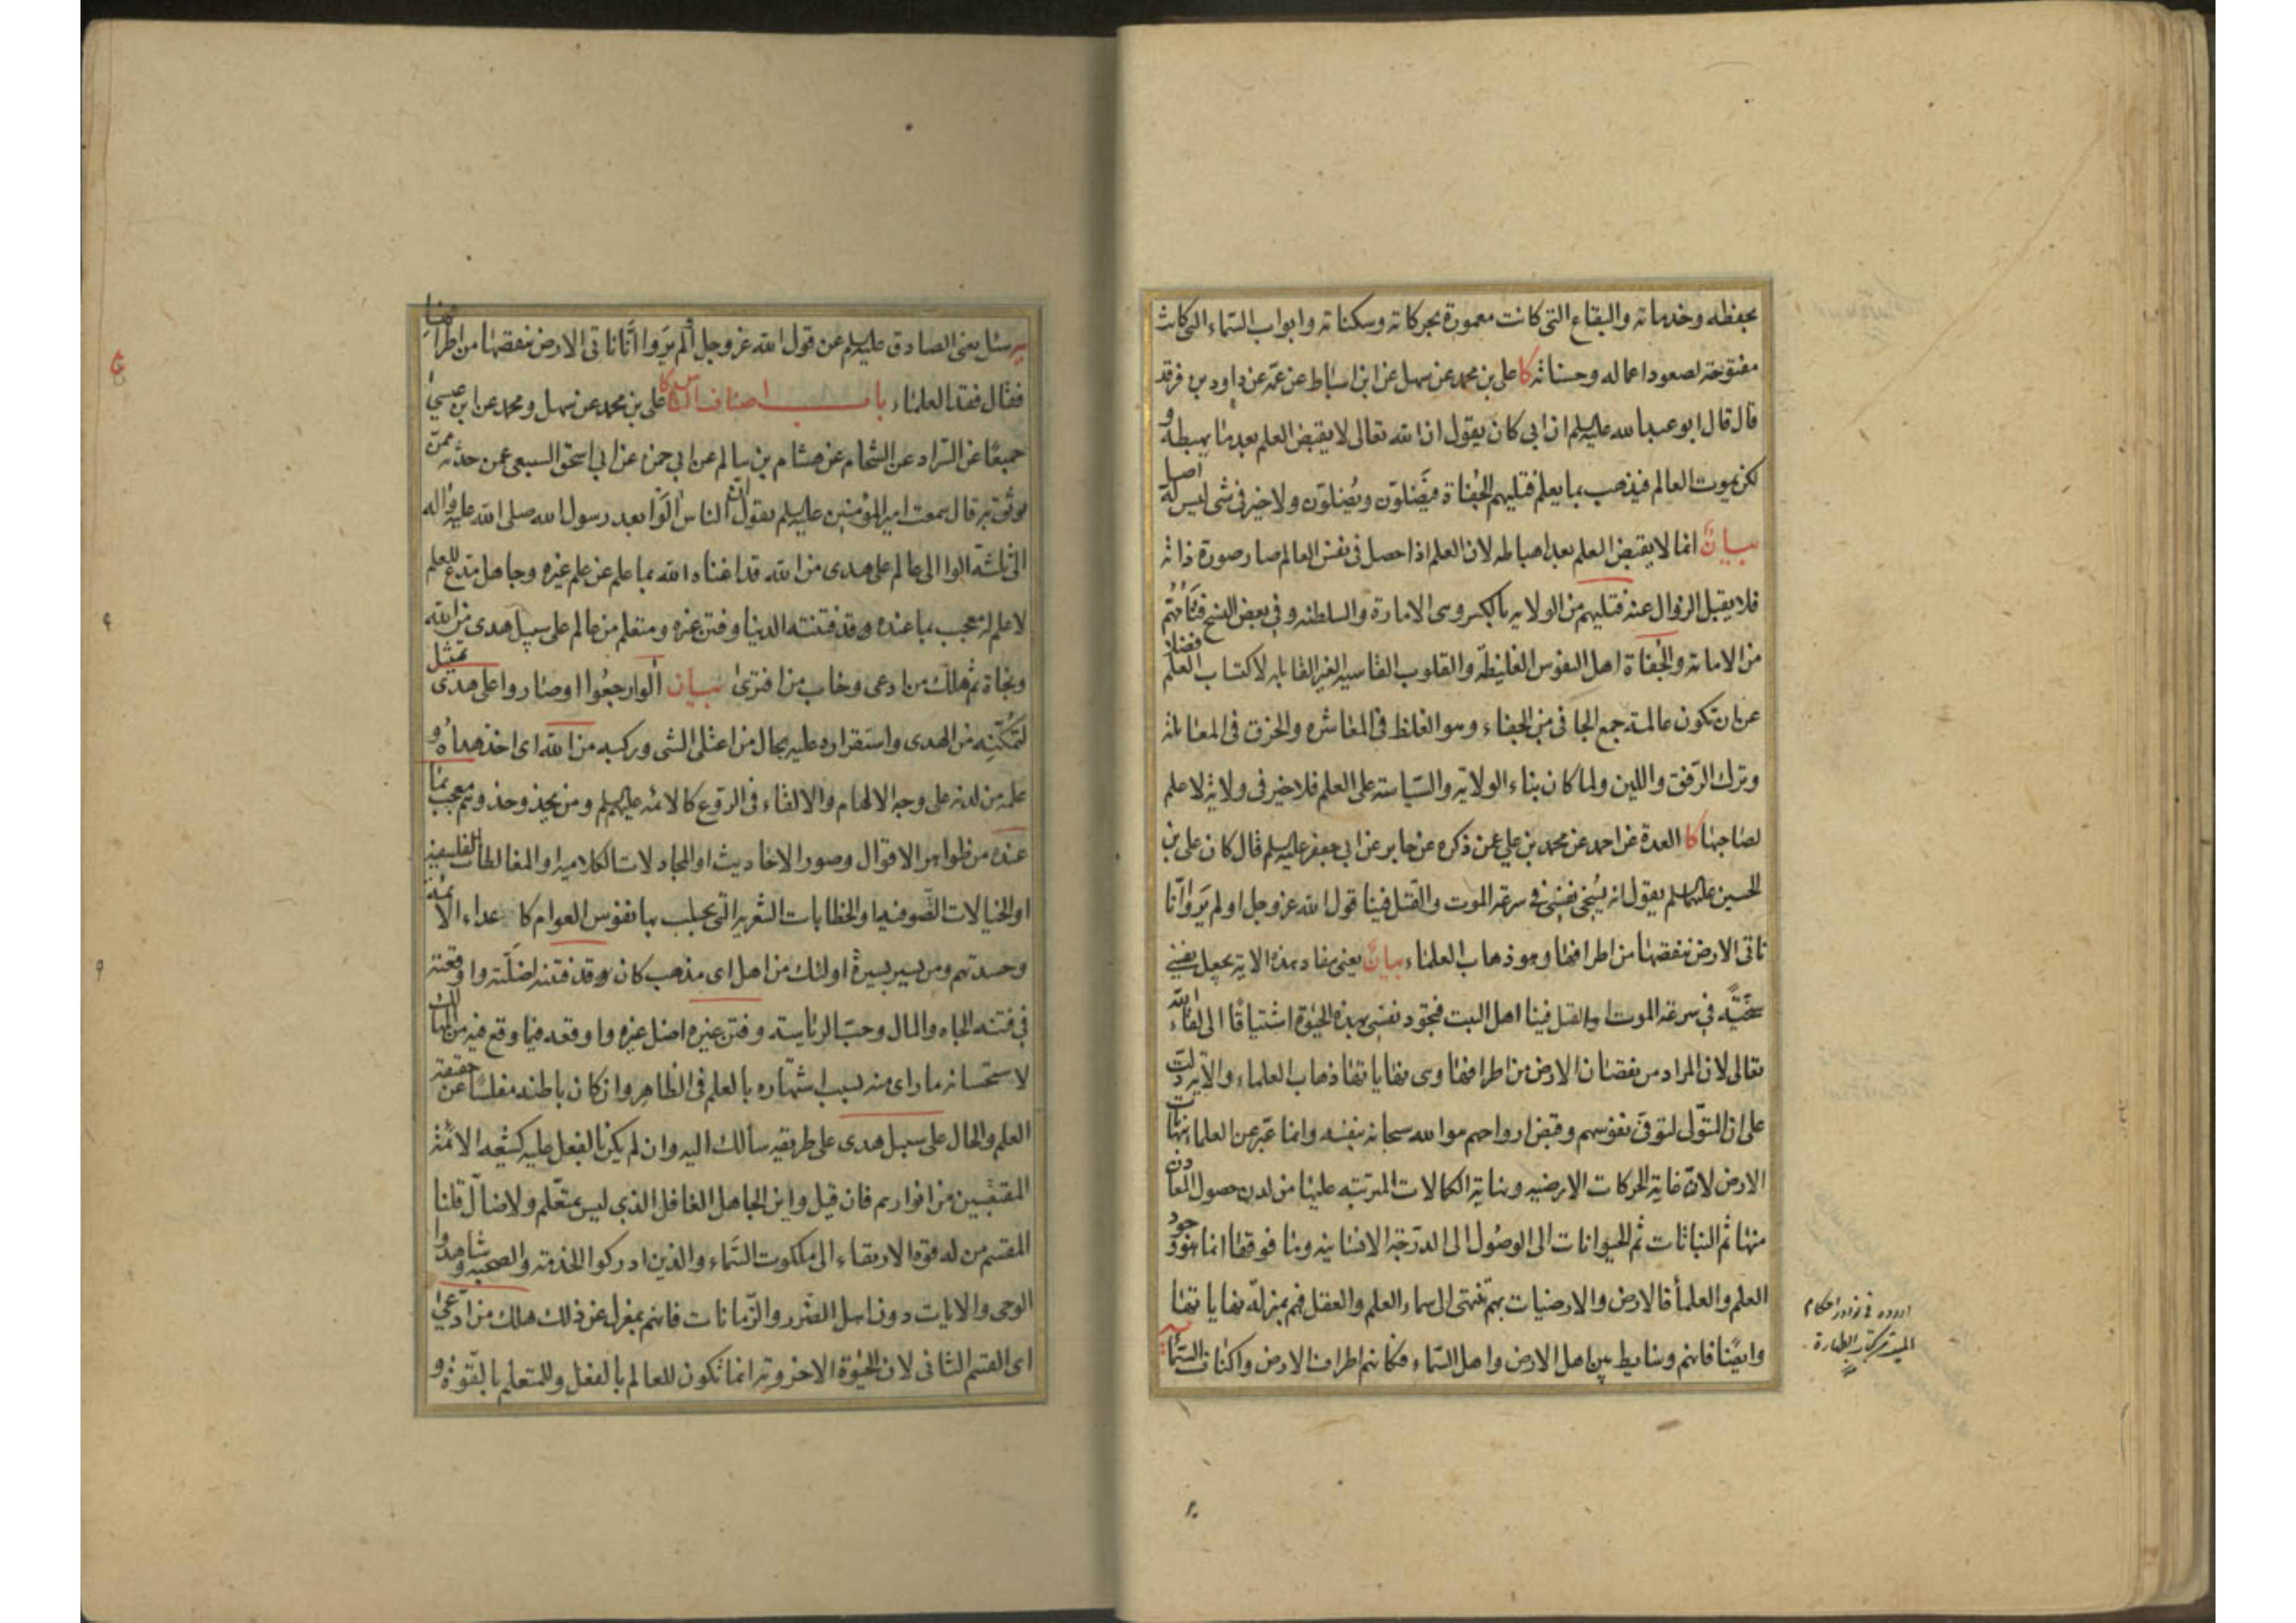 بحفظه وخدماته والبقاع التى كانت معمورة بحركاته وسكناته وابواب السماء التى كانت
مفتوحة لصعود اعماله وحسناته كا على بن محمد عن سهل عن ابن اسباط عن عمه عن داود بن فرقد
قال قال ابو عبدالله عليه السلم ان ابى كان يقول ان الله تعالى لا يقبض العلم بعد ما يهبطه و
لكن يموت العالم فيذهب بما يعلم فتليهم الجفاة فيَضلوّن ويُضلوّن ولا خير فى شى ليس له اصل
بيان انما لا يقبض العلم بعد اهباطه لان العلم اذا حصل فى نفس العالم صار صورة ذاته
فلا يقبل الزوال عنه فتليهم من الولاية بالكسر وهى الامارة والسلطنة وفى بعض النسخ فتأمّهم
من الامامة والجفاة اهل النفوس الغليظة والقلوب القاسية الغير القابلة لاكتساب العلم فضلا
عن ان تكون عالمة جمع الجافى من الجفاء وهو الغلظ فى المعاشرة والخرق فى المعاملة
وترك الرفق واللين ولما كان بناء الولاية والسياسة على العلم فلا خير فى ولاية لا علم
لصاحبها كا العدة عن احمد عن محمد بن على عمن ذكره عن جابر عن ابى جعفر عليه السلم قال كان على بن
الحسين عليهما السلم يقول انه يُسخى نفسى فى سرعة الموت والقتل فينا قول الله عز وجل اولم يَروا انّا
ناتى الارض ننقصها من اطرافها وهو ذهاب العلماء بيان يعنى مفاد هذه الاية يجعل نفسى
سَخيّة فى سرعة الموت او القتل فينا اهل البيت فتجود نفسى بهذه الحيوة اشتياقا الى لقاء الله
تعالى لان المراد من نقصان الارض من اطرافها وهى نهاياتها ذهاب العلماء والاية دلت
على ان المتولى لتوفى نفوسهم وقبض ارواحهم هو الله سبحانه بنفسه وانما عبر عن العلماء بنهايات
الارض لانّ غاية الحركات الارضية ونهاية الكمالات المرتبة عليها من لدن حصول المعادن
منها ثم النباتات ثم الحيوانات الى الوصول الى الدرجة الانسانية وما فوقها انما هو وجود
العلم والعلماء فالارض والارضيات بهم تنتهى الى سماء العلم والعقل فهم بمنزلة نهاياتها
وايضا فانهم وسايط بين اهل الارض واهل السماء فكانهم اطراف الارض واكناف السماء
يه سئل يعنى الصادق عليه السلم عن قول الله عز وجل ألم يَروا انّا ناتى الارض ننقصها من اطرافها
فقال فقد العلماء باب اصناف الناس كا على بن محمد عن سهل ومحمد عن ابن عيسى
جميعًا عن السراد عن الشحام عن هشام بن سالم عن ابى حمزة عن ابى اسحق السبيعى عمن حدثه ممن
يوثق به قال سمعت امير المؤمنين عليه السلم يقول ان الناس آلَوا بعد رسول الله صلى الله عليه واله
الى ثلثة آلوا الى عالم على هدى من الله قد اغناه الله بما علم عن علم غيره وجاهل مدع للعلم
لا علم له معجب بما عنده وقد فتنته الدنيا وفتن غيره ومتعلم من عالم على سبيل هدى من الله
ونجاة ثم هلك من ادعى وخاب من افترى بيان آلوا رجعُوا اوصاروا على هدى تمثيل
لتمكنه من الهدى واستقراره عليه بحال من اعتلى الشى وركبه من الله اى اخذ هداه و
علمه من لدنه على وجه الالهام والالقاء فى الروع كالائمة عليهم السلم ومن يحذو حذوهم معجب بما
عنده من ظواهر الاقوال وصور الاحاديث او المجادلات الكلامية او المغالطات الفلسفية
او الخيالات الصوفية او الخطابات الشعرية التى يجلب بها نفوس العوام كاعداء الائمة
وحسدتهم ومن يسير بسيرة اولئك من اهل اى مذهب كان وقد فتنته اضلّته واوقعته
فى فتنة الجاه والمال وحبّ الرئاسة وفتن غيره اضل غيره واوقعه فيما وقع فيه من المهالك
لاستحسانه ما راى منه بسبب اشتهاره بالعلم فى الظاهر وان كان باطنه مفلسا عن حقيقة
العلم والحال على سبيل هدى على طريقه سالك اليه وان لم يكن بالفعل عليه كشيعه الائمة
المقتبسين من انوارهم فان قيل واين الجاهل الغافل الذى ليس بمتعلّم ولا ضالّ قلنا
المقسم من له قوة الارتقاء الى ملكوت السماء والذين ادركوا الخدمة والصحبة وشاهدوا
الوحى والايات دون اهل الضرر والزمانات فانهم بمعزل عن ذلك هلك من ادّعى
اى القسم الثانى لان الحيوة الاخروية انما تكون للعالم بالفعل وللمتعلم بالقوة و